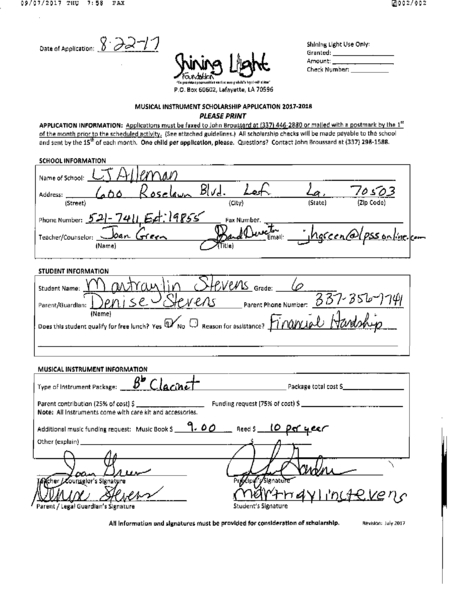 09/07/2017 THU 7:58 FAX 002/002
Date of Application: 8-22-17
Shining Light Use Only:
Granted:
Amount:
Check Number:
Shining Light
Foundation
P.O. Box 60602, Lafayette, LA 70596
MUSICAL INSTRUMENT SCHOLARSHIP APPLICATION 2017-2018
PLEASE PRINT
APPLICATION INFORMATION: Applications must be faxed to John Broussard at (337) 446-2880 or mailed with a postmark by the 1st
of the month prior to the scheduled activity. (See attached guidelines.) All scholarship checks will be made payable to the school
and sent by the 15th of each month. One child per application, please. Questions? Contact John Broussard at (337) 298-1588.
SCHOOL INFORMATION
Name of School: LJ Alleman
Address: 600 Roselawn Blvd. Laf. La. 70503
(Street) (City) (State) (Zip Code)
Phone Number: 521-7411, Ext: 19855 Fax Number:
Teacher/Counselor: Joan Green Band Director Email: jhgreen@lpssonline.com
(Name) (Title)
STUDENT INFORMATION
Student Name: Mantraylin Stevens Grade: 6
Parent/Guardian: Denise Stevens Parent Phone Number: 337-356-1741
(Name)
Does this student qualify for free lunch? Yes No Reason for assistance? Financial Hardship
MUSICAL INSTRUMENT INFORMATION
Type of Instrument Package: Bb Clarinet Package total cost $
Parent contribution (25% of cost) $ Funding request (75% of cost) $
Note: All instruments come with care kit and accessories.
Additional music funding request: Music Book $ 9.00 Reed $ 10 per year
Other (explain) $
Joan Green
Teacher / Counselor's Signature Principal's Signature
Denise Stevens martraylinstevens
Parent / Legal Guardian's Signature Student's Signature
All information and signatures must be provided for consideration of scholarship. Revision: July 2017